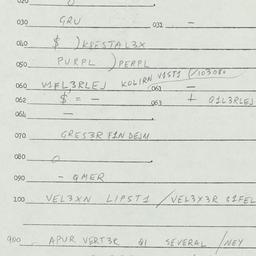 020 O
030 GRU 031 —
040 $ )KRESTAL3X
050 PURPL )PERPL
060 V1FL3RLEJ KOLIRN V1ST1 (/103080
061 —
062 $ = — 063 + Q1L3RLEJ
064 —
070 GRES3R F1N DEJM
080 O
090 – QMER
100 VEL3XN LIPST1 /VEL3Y3R
900 APUR VERT3R Q1 SEVERAL /NEY